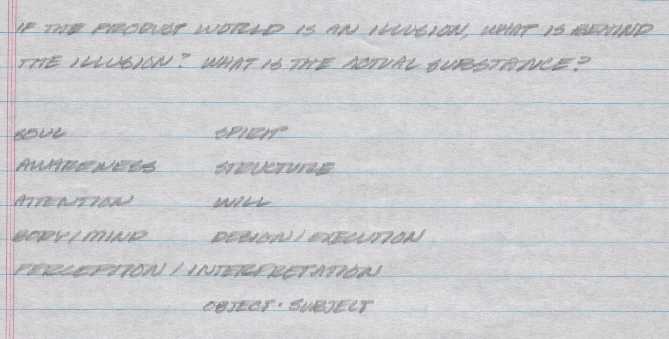 IF THE PRODUCT WORLD IS AN ILLUSION, WHAT IS BEHIND
THE ILLUSION? WHAT IS THE ACTUAL SUBSTANCE?
SOUL SPIRIT
AWARENESS STRUCTURE
ATTENTION WILL
BODY / MIND DESIGN / EXECUTION
PERCEPTION / INTERPRETATION
OBJECT · SUBJECT